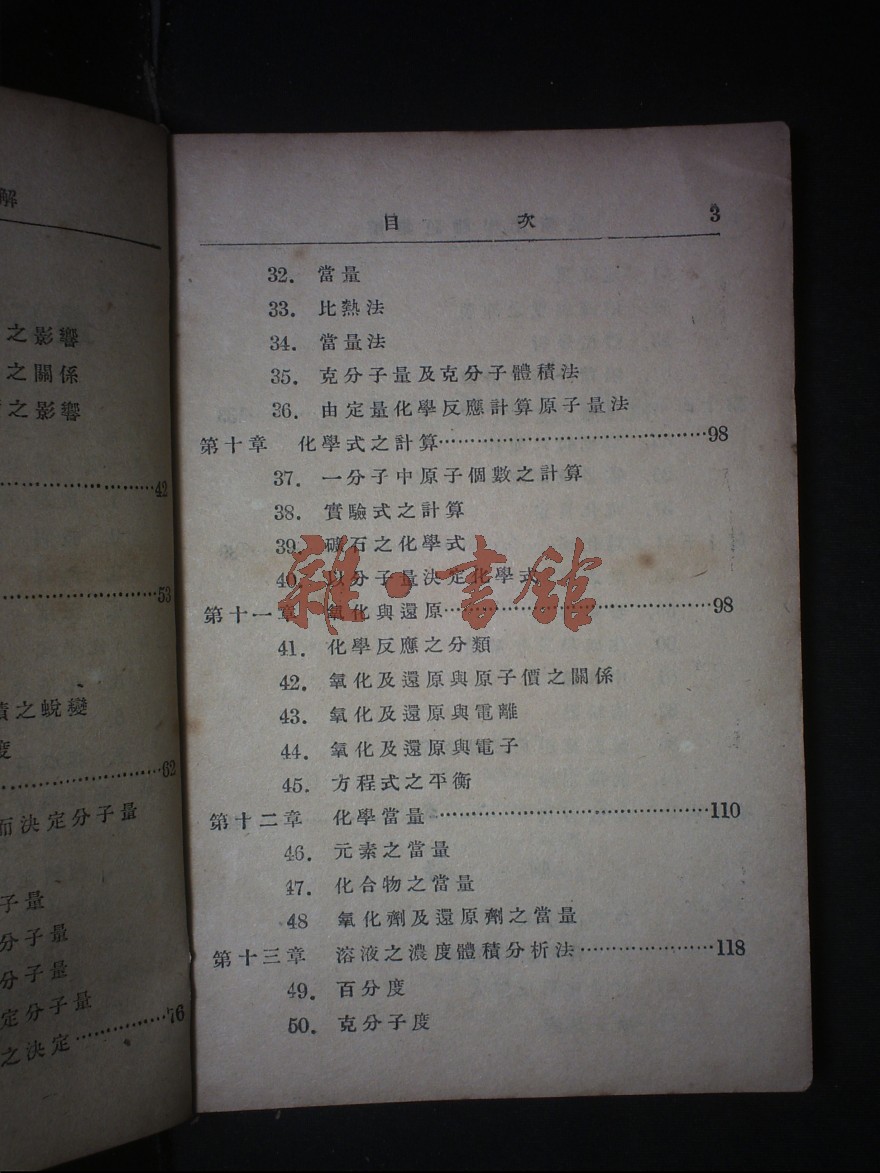 解
之影響
之關係
之影響
42
53
之蛻變
度
62
而決定分子量
子量
分子量
分子量
定分子量
之決定…………76
目 次 3
32. 當量
33. 比熱法
34. 當量法
35. 克分子量及克分子體積法
36. 由定量化學反應計算原子量法
第十章 化學式之計算…………98
37. 一分子中原子個數之計算
38. 實驗式之計算
39. 礦石之化學式
40. 以分子量決定化學式
第十一章 氧化與還原…………98
41. 化學反應之分類
42. 氧化及還原與原子價之關係
43. 氧化及還原與電離
44. 氧化及還原與電子
45. 方程式之平衡
第十二章 化學當量…………110
46. 元素之當量
47. 化合物之當量
48 氧化劑及還原劑之當量
第十三章 溶液之濃度體積分析法…………118
49. 百分度
50. 克分子度
雜·書館